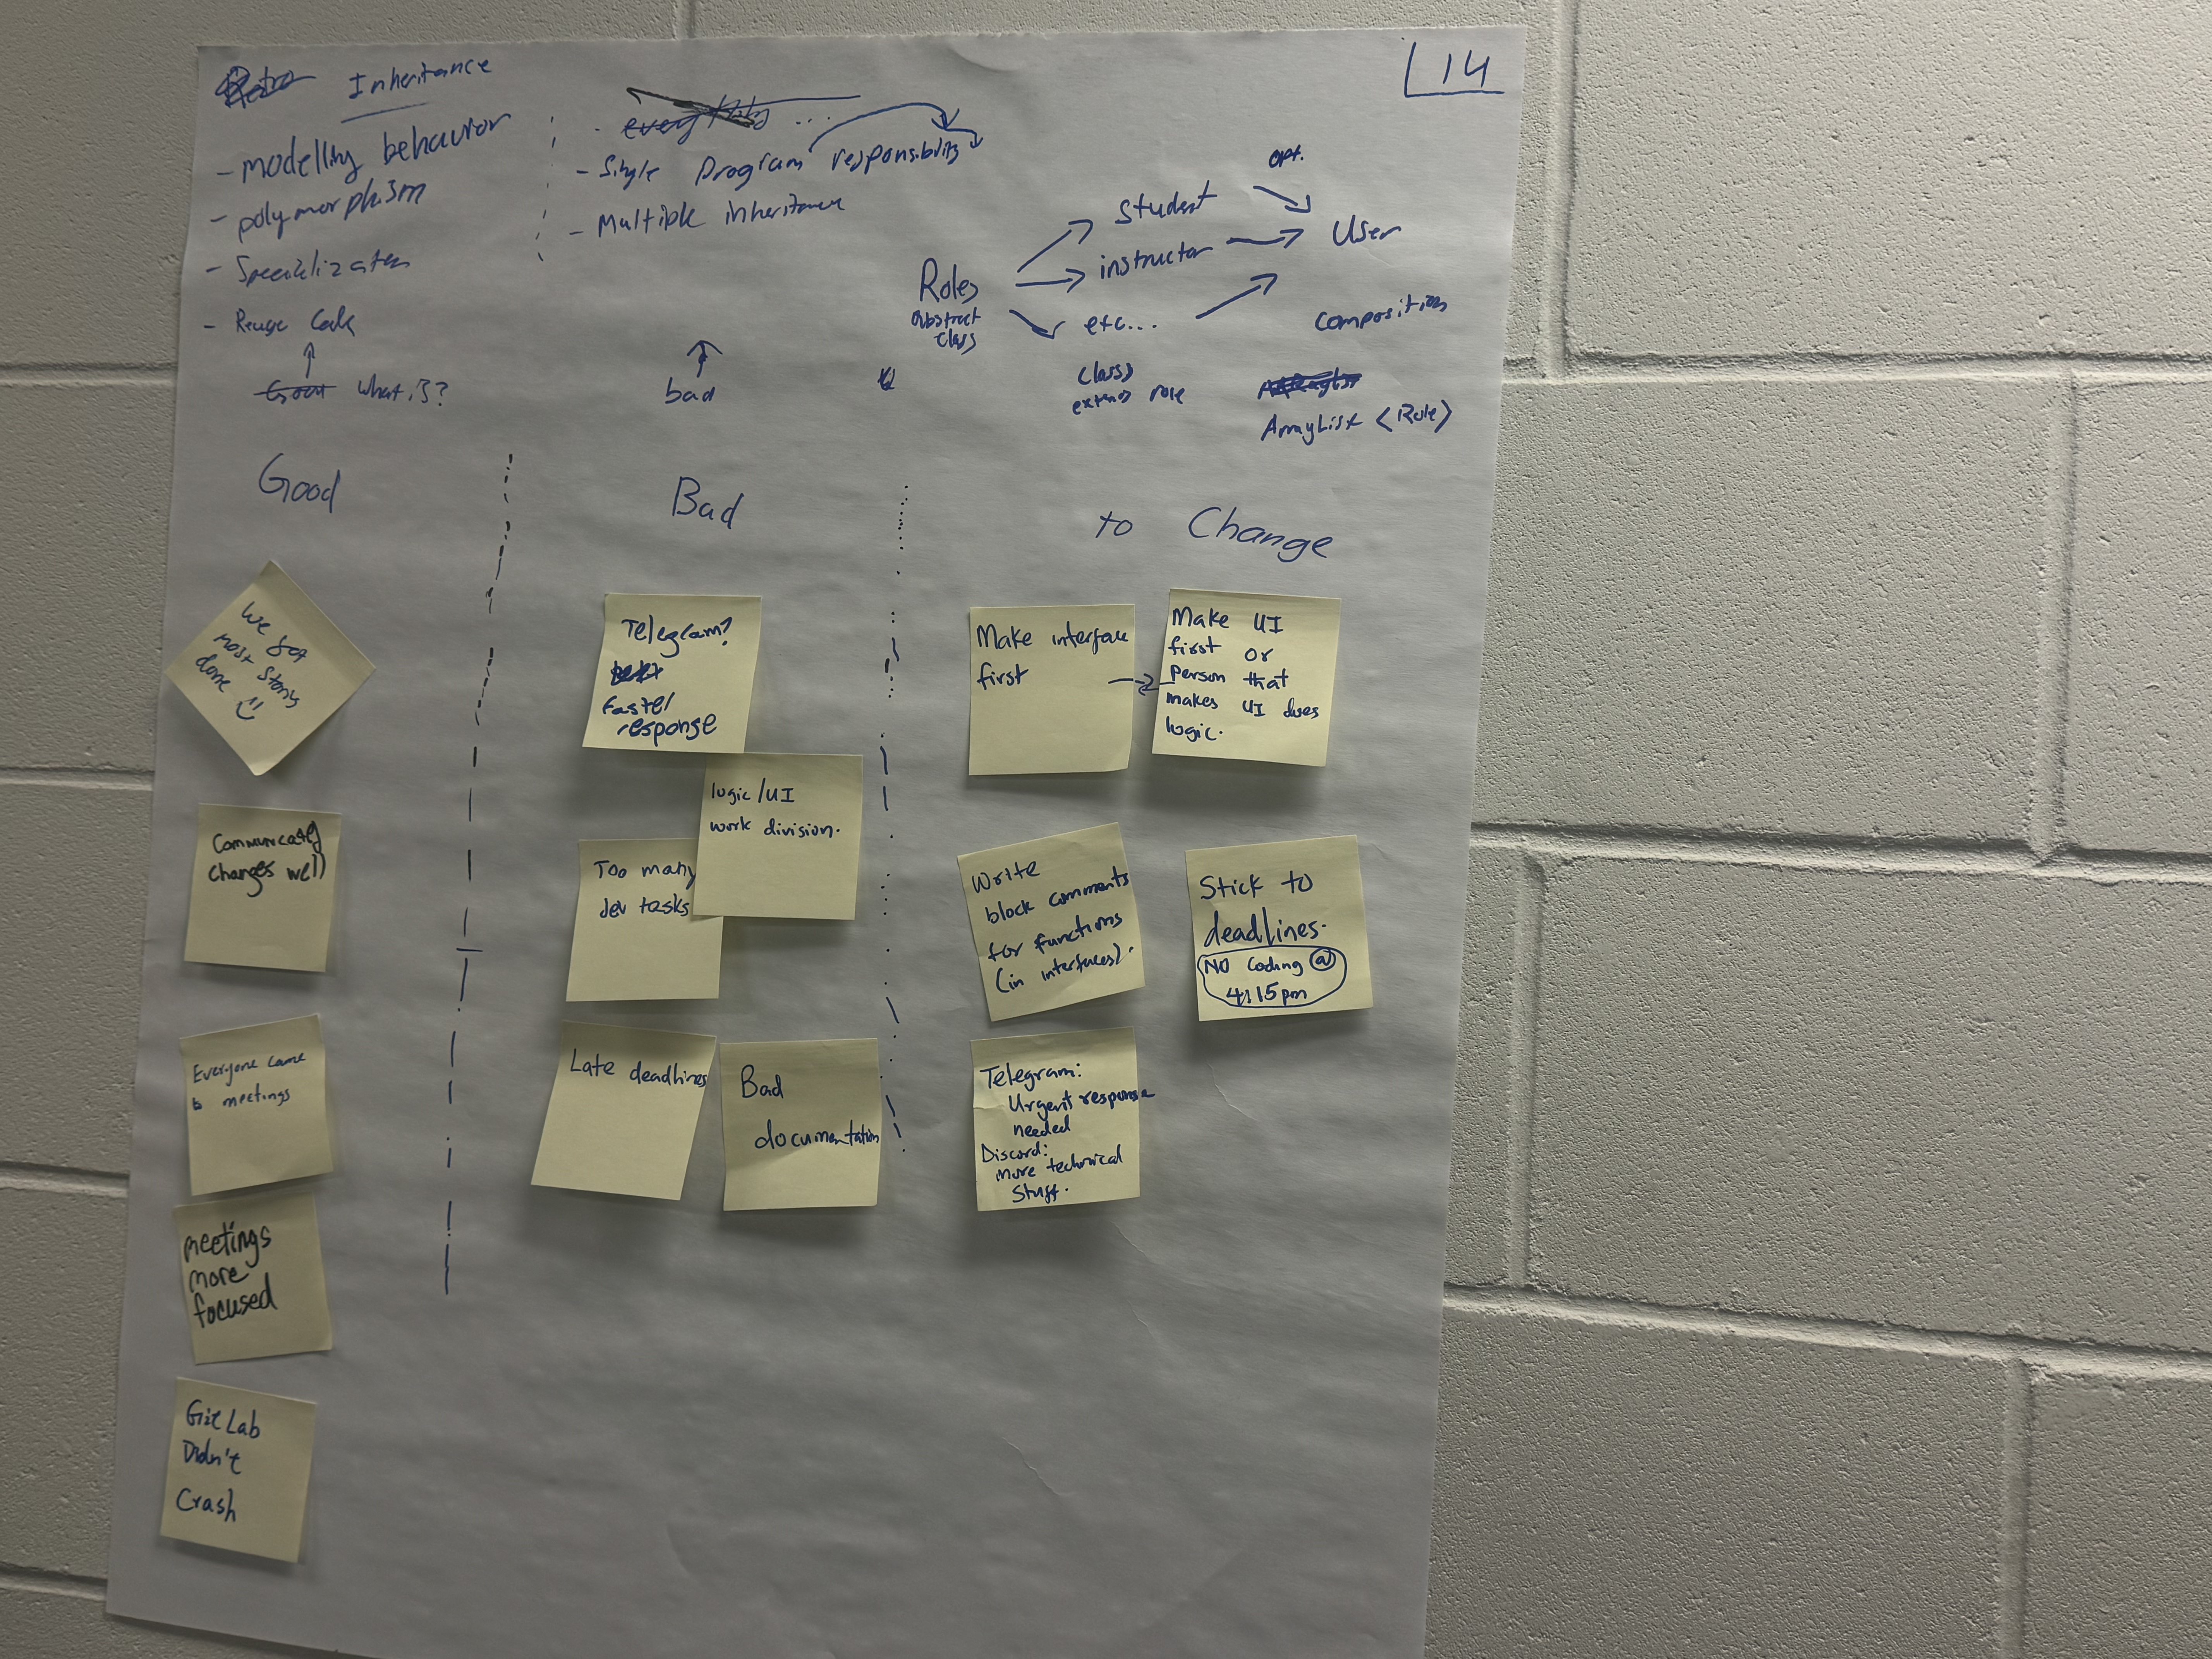 14
Inheritance
- modelling behavior
- polymorphism
- Specialization
- Reuse Code
what is?
...
- Single Program responsibility
- Multiple inheritance
bad
opt.
Student
instructor
User
Roles
abstract
class
etc...
Composition
class)
extends role
ArrayList <Role>
Good
We got
most storys
done
Communicated
changes well
Everyone came
to meetings
meetings
more
focused
GitLab
Didn't
Crash
Bad
Telegram?
faster
response
logic/UI
work division.
Too many
dev tasks
Late deadlines
Bad
documentation
to Change
Make interface
first
Make UI
first or
person that
makes UI does
logic.
Write
block comments
for functions
(in interfaces).
Stick to
deadlines.
NO Coding @
4:15pm
Telegram:
Urgent response
needed
Discord:
more technical
Stuff.